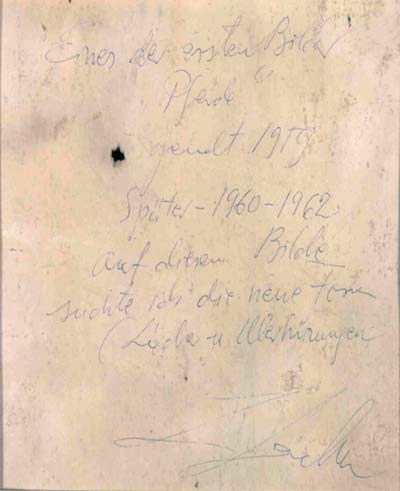 Eines der ersten Bilder
"Pferde"
gemalt 1959
Später - 1960 - 1962
auf diesem Bilde
suchte ich die neue Form
(Löcher u.